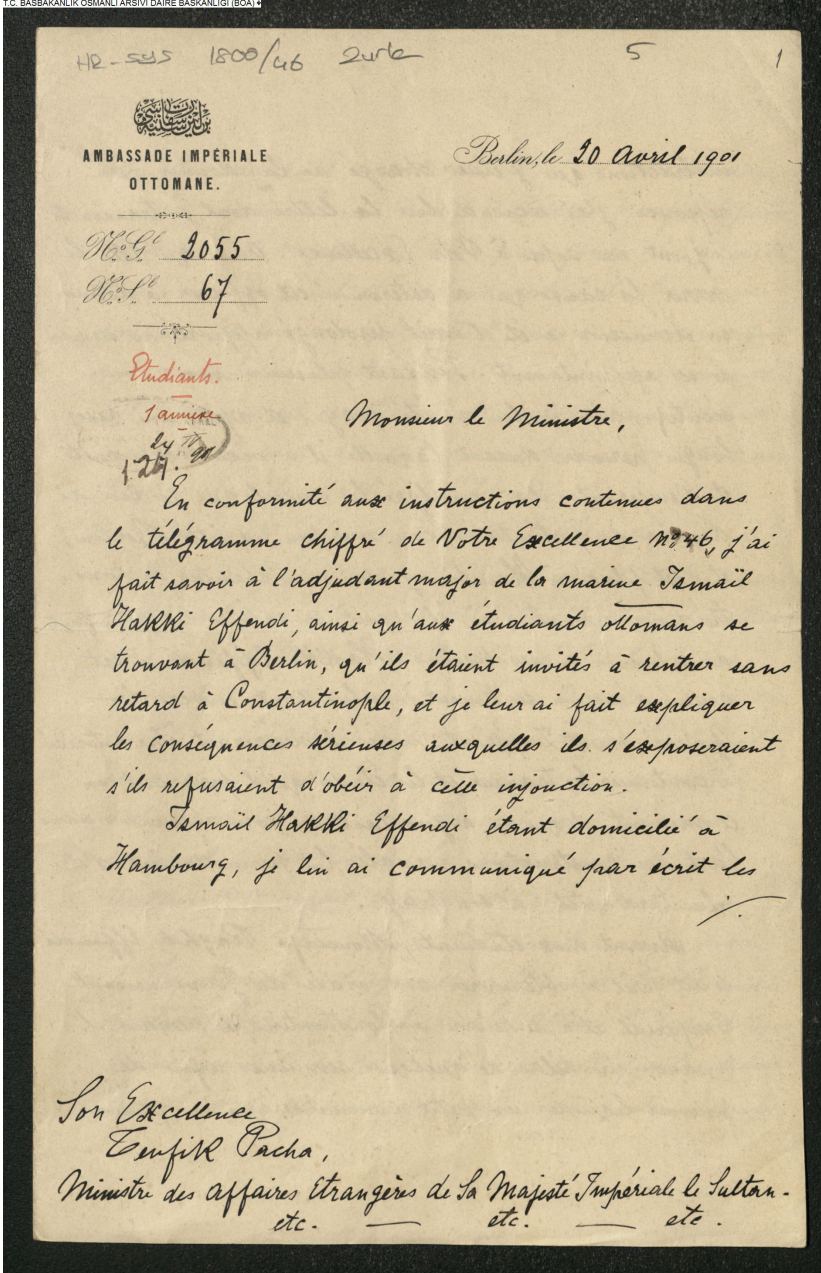 T.C. BASBAKANLIK OSMANLI ARSIVI DAIRE BASKANLIGI (BOA)
HR-SYS 1800/46
5
1
AMBASSADE IMPÉRIALE
OTTOMANE.
Berlin, le 20 Avril 1901
N.o G.l 2055
N.o S.l 67
Etudiants.
1 annexe
24 IV 901
Monsieur le Ministre,
En conformité aux instructions contenues dans
le télégramme chiffré de Votre Excellence No 46, j'ai
fait savoir à l'adjudant major de la marine Ismaïl
Hakki Effendi, ainsi qu'aux étudiants ottomans se
trouvant à Berlin, qu'ils étaient invités à rentrer sans
retard à Constantinople, et je leur ai fait expliquer
les conséquences sérieuses auxquelles ils s'exposeraient
s'ils refusaient d'obéir à cette injonction.
Ismaïl Hakki Effendi étant domicilié à
Hambourg, je lui ai communiqué par écrit les
./.
Son Excellence
Tevfik Pacha,
Ministre des Affaires Etrangères de Sa Majesté Impériale le Sultan-
etc. — etc. — etc.